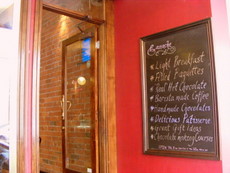 Light Breakfast
Filled Baguettes
Real Hot Chocolate
Barista made Coffee
Handmade Chocolates
Delicious Patisserie
great Gift ideas
Chocolate making Courses